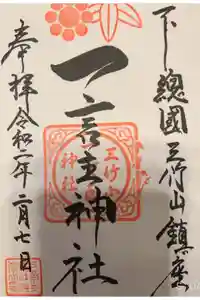 下総國三竹山鎮座
一言主神社
三竹山
神社
奉拝 令和二年二月七日